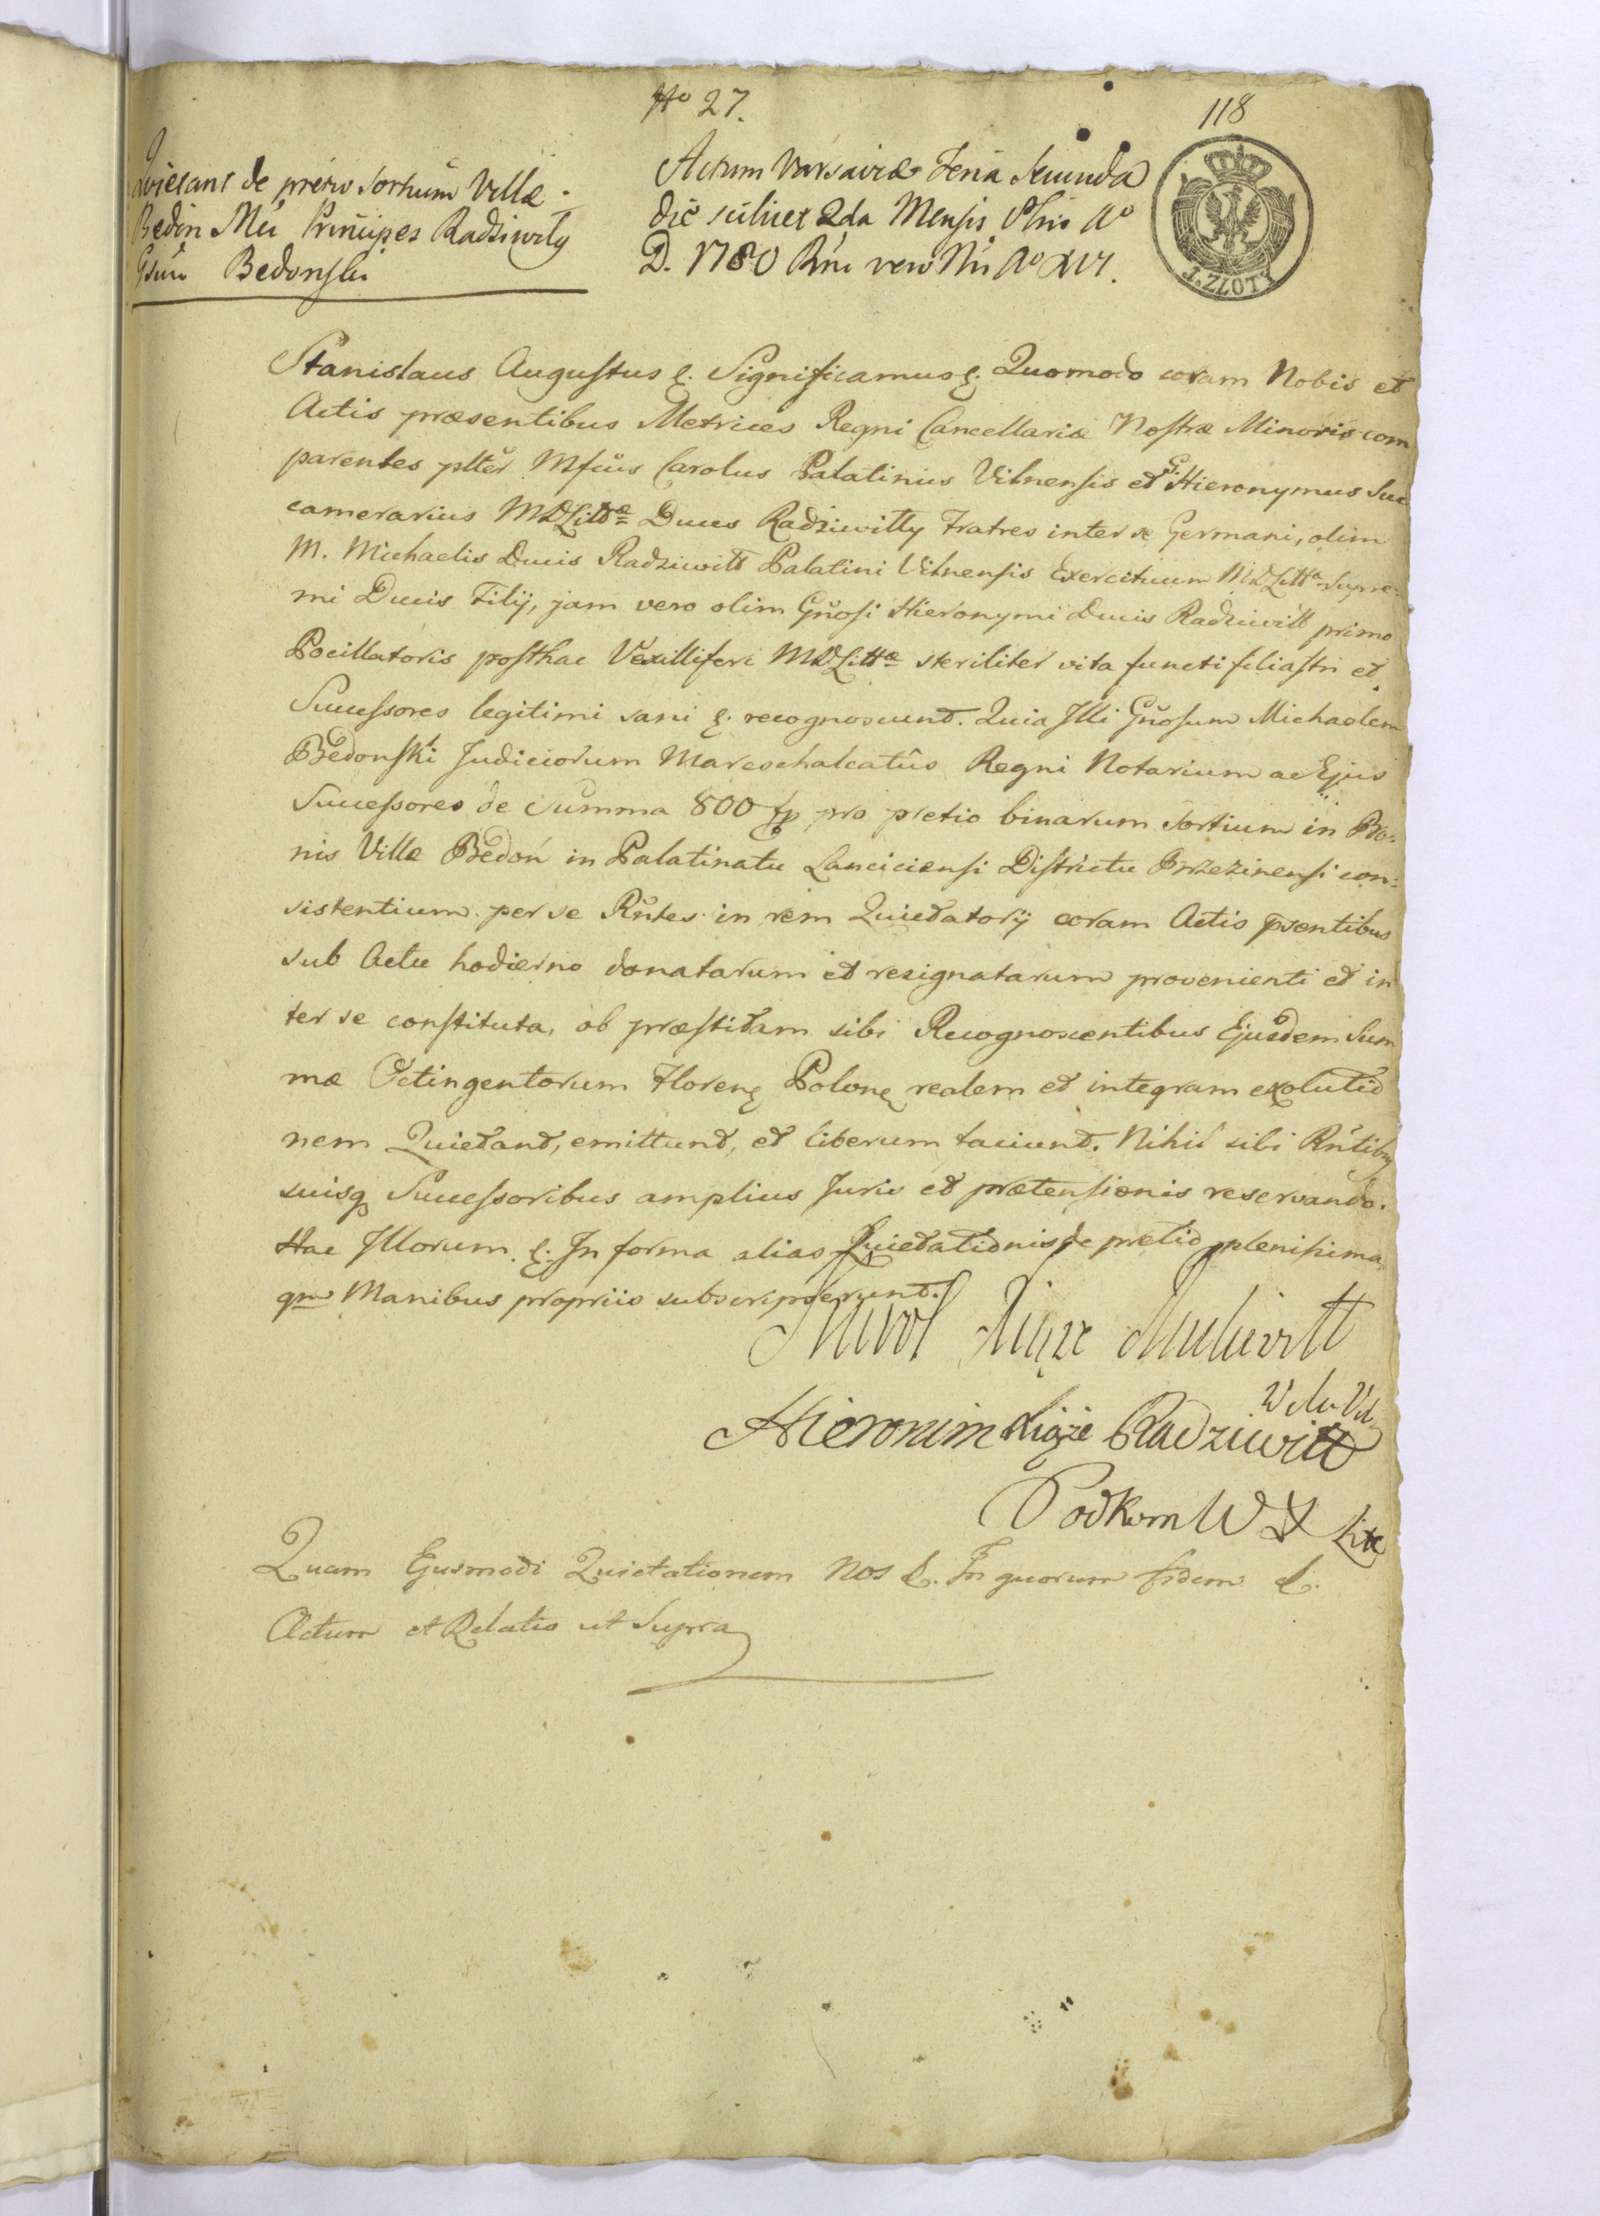 No 27.
118
Quietant de pretio sortium Villæ
Bedon Mci Principes Radziwiły
Gsum Bedonski
Actum Varsaviæ Feria Secunda
die scilicet 2da Mensis 8bris Ao
D. 1780 Rni vero Nri Ao XVI.
1. ZŁOTY
Stanislaus Augustus &. Significamus &. Quomodo coram Nobis et
Actis præsentibus Metrices Regni Cancellariæ Nostræ Minoris com
parentes plter Mfcus Carolus Palatinus Vilnensis et G. Hieronymus Suc
camerarius MDLittæ Duces Radziwiłły Fratres inter se Germani, olim
M. Michaelis Ducis Radziwiłł Palatini Vilnensis Exercituum MDLittæ Supre-
mi Ducis Filij, jam vero olim Gnosi Hieronymi Ducis Radziwiłł primo
Pocillatoris posthac Vexilliferi MDLittæ steriliter vita functi filiastri et
Successores legitimi sani &. recognoscunt. Quia Illi Gnosum Michaelem
Bedonski Judiciorum Mareschalcatûs Regni Notarium ac Ejus
Successores de Summa 800 fp pro pretio binarum Sortium in Bo-
nis Villæ Bedoń in Palatinatu Lanciciensi Districtu Brzezinensi con-
sistentium per se Rntes in rem Quietatorij coram Actis psentibus
sub Actu hodierno donatarum et resignatarum provenienti et in
ter se constituta, ob præstitam sibi Recognoscentibus Ejusdem Sum
mæ Octingentorum Floren Polon realem et integram exolutio
nem Quietant, emittunt, et liberum faciunt. Nihil sibi Rntibus
suisq Successoribus amplius Juris et prætensionis reservando.
Hac Illorum &. In forma alias Quietationis de pretio plenissima
qm Manibus propriis subscripserunt.
Karol Xiąze Radziwiłł
W Wo Wil
Hieronim Xiąże Radziwiłł
Podkom W X Litt
Quam Ejusmodi Quietationem Nos &. In quorum fidem &.
Actum et Relatio ut Supra